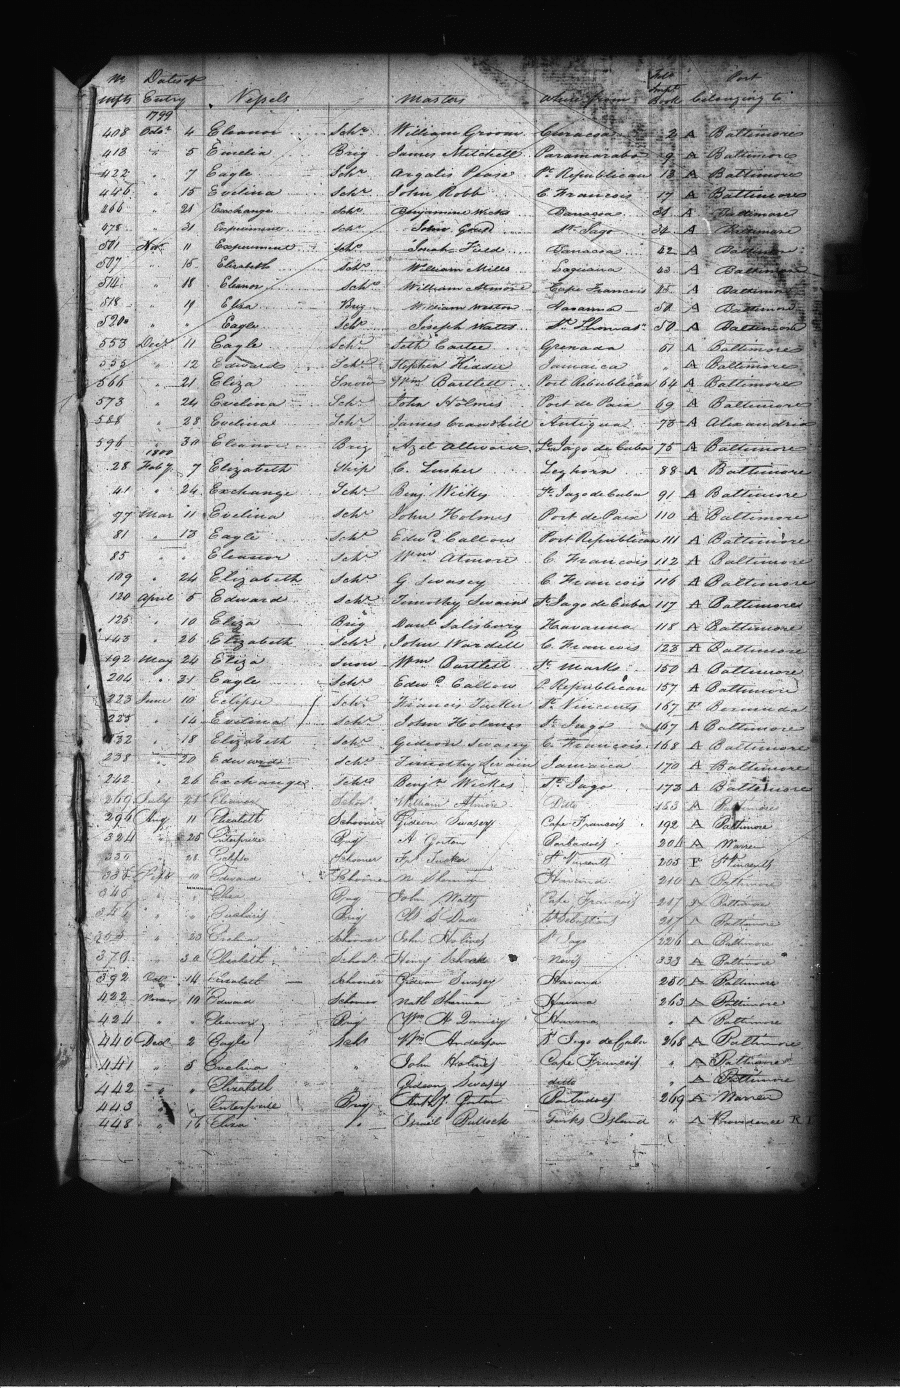 No Dates of Fols Port
Mfts Entry Vessels Masters Where from Impt Book belonging to
1799
408 Octr 4 Eleanor Schr William Groom Curacoa 2 A Baltimore
413 " 5 Emelia Brig James Mitchell Paramarabo 9 A Baltimore
422 " 7 Eagle Schr Argalis Pease Pt Republican 13 A Baltimore
446 " 15 Evelina Schr John Robb C Francois 17 A Baltimore
" 21 Exchange Schr Benjamin Wicks 31 A Baltimore
" 31 Experiment Schr John Gould St Jago 34 A Baltimore
501 Nov. 11 Experiment Schr Field 42 A Baltimore
507 " 15 Elizabeth Schr William Mills 43 A Baltimore
514 " 18 Eleanor Schr William Cape Francois A Baltimore
518 " 19 Eliza Brig William Weston Havanna A Baltimore
520 " " Eagle Schr Joseph Watts St Thomas 50 A Baltimore
553 Decr 11 Eagle Schr Seth Carter Grenada 61 A Baltimore
555 " 12 Edward Schr Stephen Kidder Jamaica " A Baltimore
566 " 21 Eliza Snow Wm Bartlett Port Republican 64 A Baltimore
573 " 24 Evelina Schr John Holmes Port de Paix 69 A Baltimore
588 " 28 Evelina Schr James Crawdhill Antigua 73 A Alexandria
596 " 30 Eleanor Brig Azel Allwood St Jago de Cuba 75 A Baltimore
1800
28 Feby 7 Elizabeth Ship C. Lusher Leghorn 88 A Baltimore
41 " 24 Exchange Schr Benj Wicky St Jago de Cuba 91 A Baltimore
77 Mar 11 Evelina Schr John Holmes Port de Paix 110 A Baltimore
81 " 13 Eagle Schr Edwd Callow Port Republican 111 A Baltimore
85 " " Eleanor Schr Wm Atmore C. Francois 112 A Baltimore
109 " 24 Elizabeth Schr G Swasey C Francois 116 A Baltimore
120 April 5 Edward Schr Timothy Swain St Jago de Cuba 117 A Baltimore
125 " 10 Eliza Brig Danl Salisbury Havanna 118 A Baltimore
143 " 26 Elizabeth Schr John Wardell C Francois 123 A Baltimore
192 May 24 Eliza Snow Wm Bartlett St Marks 150 A Baltimore
204 " 21 Eagle Schr Edwd Callow P. Republican 157 A Baltimore
223 June 10 Eclipse Schr Francis Tucker St Vincents 167 F Bermuda
225 " 14 Evilina Schr John Holmes St Jago 167 A Baltimore
232 " 18 Elizabeth Schr Gideon Swasey C. François 168 A Baltimore
238 " 20 Edward Schr Timothy Swain Jamaica 170 A Baltimore
242 " 26 Exchange Schr Benjn Wickes St Jago 173 A Baltimore
269 July 28 Eleanor Schor William Atmore Ditto 183 A Baltimore
296 Aug 11 Elizabeth Schooner Gideon Swasey Cape Francois 192 A Baltimore
324 " 25 Enterprize Brig A Gorton Barbadoes 204 A Warren
" 28 Eclipse Schooner Fs Tucker St Vincents 205 F St Vincents
Sept 10 Edward Schooner N Sherman Havana 210 A Baltimore
345 " " Brig John Watts Cape Francois 217 A Baltimore
" " Brig St Sebastians 217 A Baltimore
" 23 Evelina Schooner John Holmes St Jago 226 A Baltimore
370 " 30 Elizabeth Schor Henry Nevis 333 A Baltimore
392 Oct 14 Elizabeth Schooner Gideon Swasey Havana 250 A Baltimore
422 Novem 10 Edward Schooner Nath Sherman Havana 263 A Baltimore
424 " " Eleanor Brig Wm H Havana " A Baltimore
440 Decr 2 Eagle Wm Anderson St Jago de Cuba 268 A Baltimore
441 " 5 Evelina " John Holmes Cape Francois " A Baltimore
442 " " Elizabeth " Gideon Swasey ditto " A Baltimore
443 " " Enterprise Brig Gorton Barbadoes 269 A Warren
448 " 16 Eliza " Israel Bullock Turks Island " A Providence R I